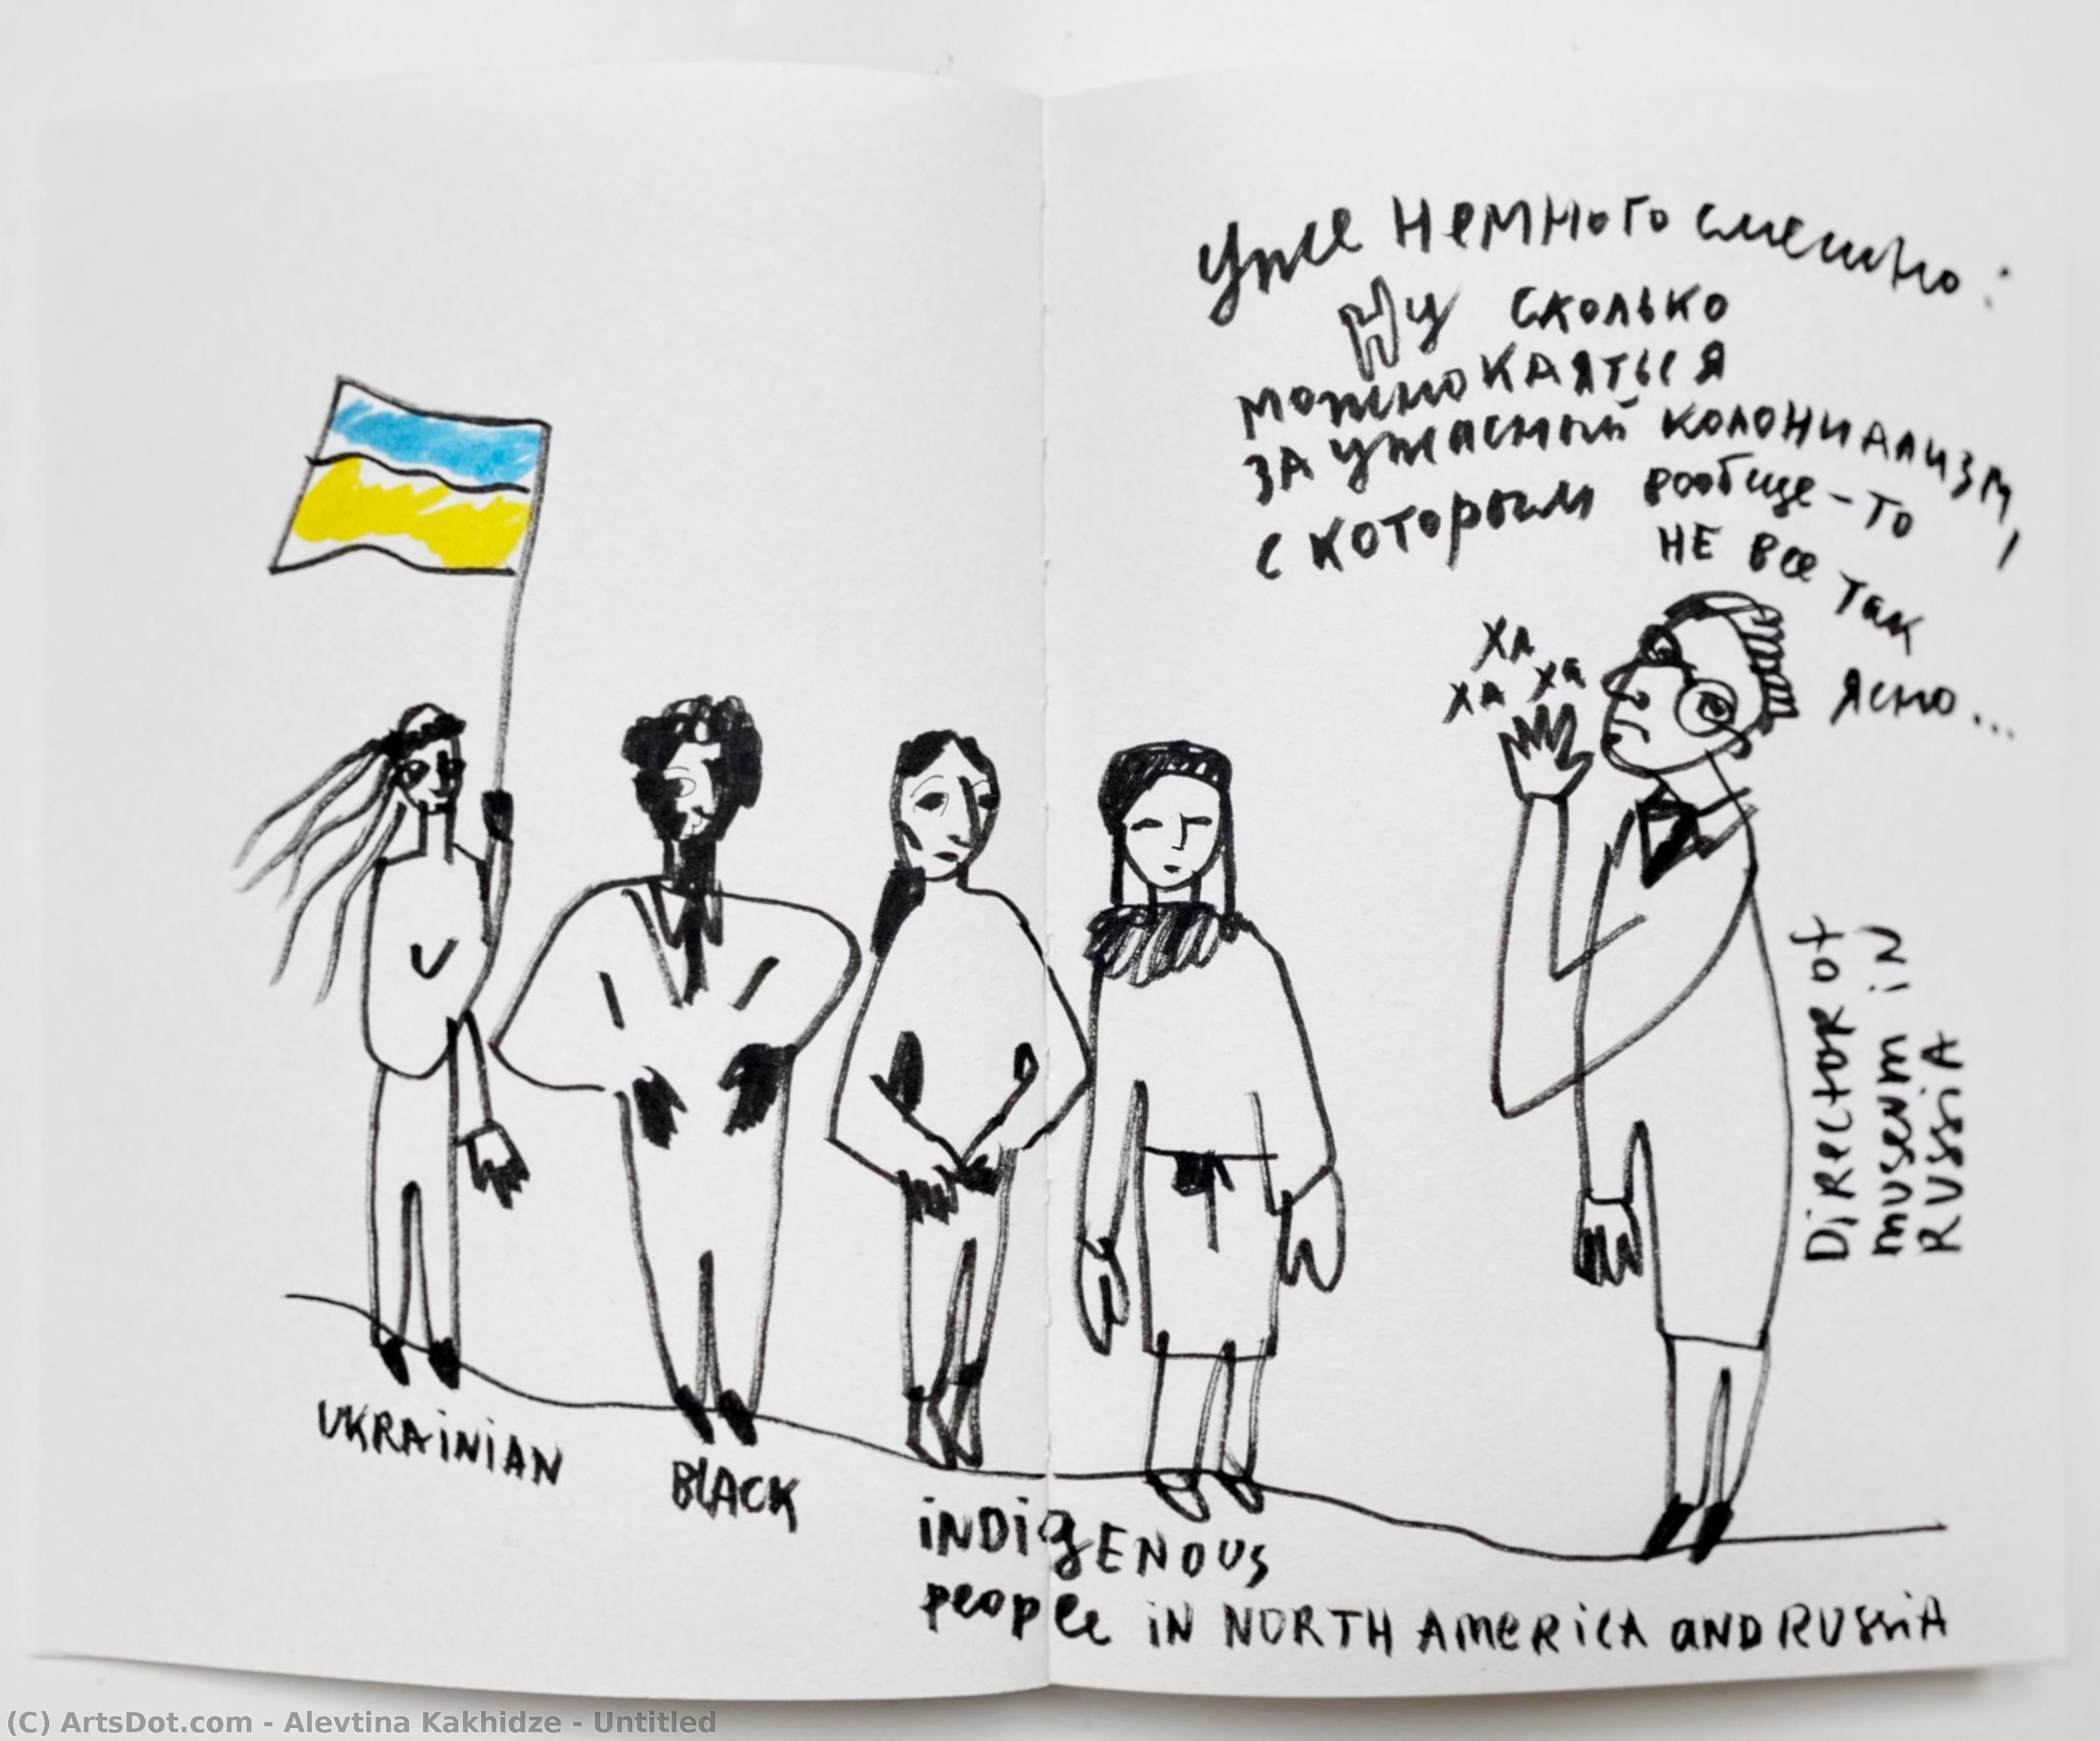 уже немного смешно:
Ну сколько
можно каяться
за ужасный колониализм,
с которым вообще-то
не все так
ясно...
ха
ха ха
Director of
museum in
Russia
UKRAINIAN
BLACK
INDIGENOUS
people in NORTH AMERICA AND RUSSIA
(C) ArtsDot.com - Alevtina Kakhidze - Untitled